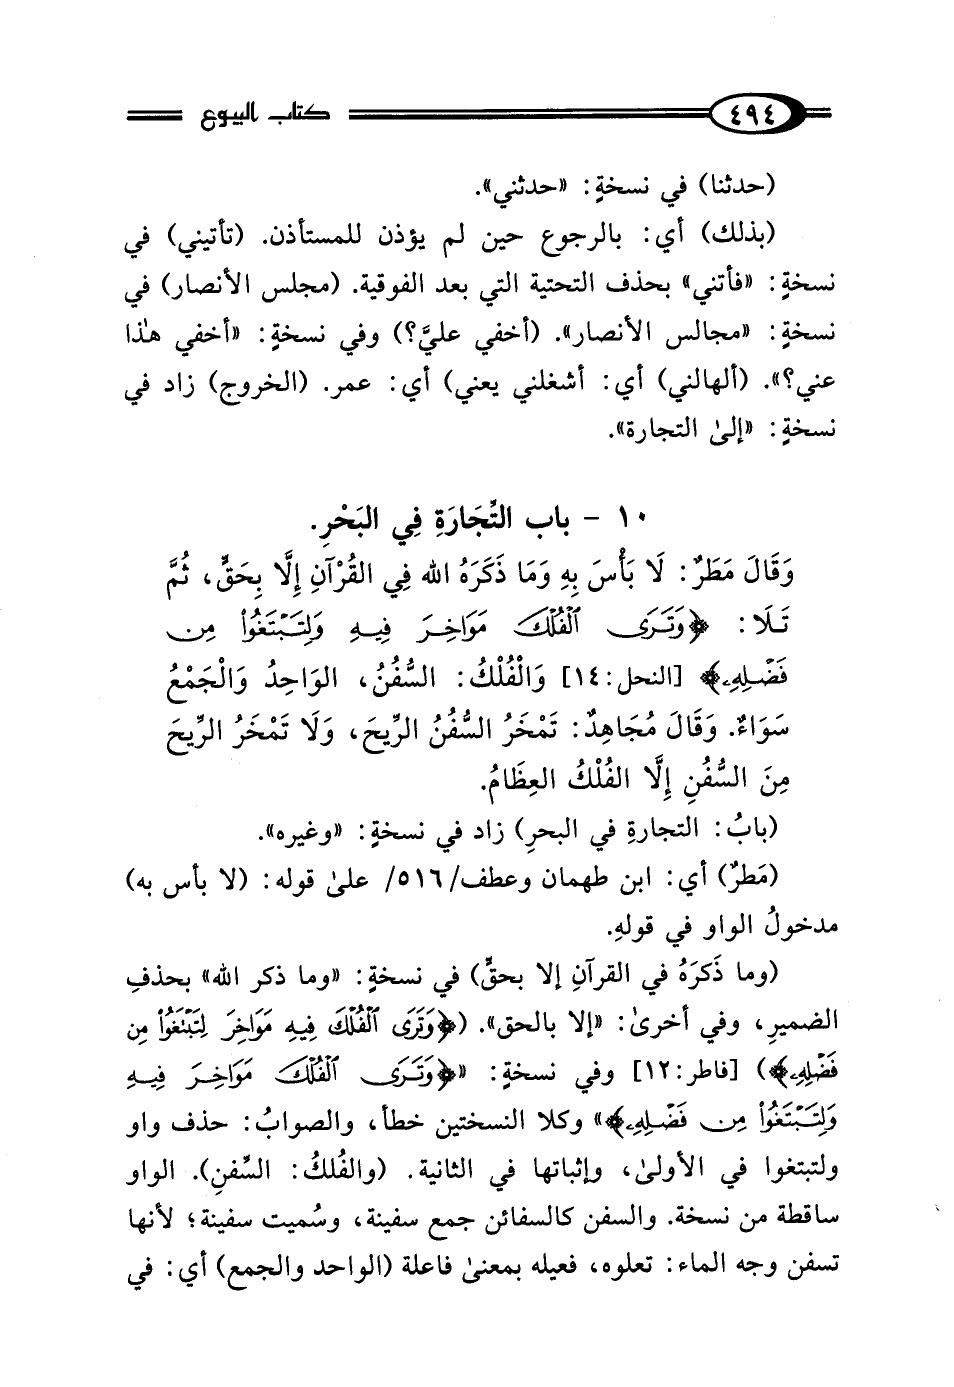 ٤٩٤ كتاب البيوع
(حدثنا) في نسخةٍ: «حدثني».
(بذلك) أي: بالرجوع حين لم يؤذن للمستأذن. (تأتيني) في
نسخةٍ: «فأتني» بحذف التحتية التي بعد الفوقية. (مجلس الأنصار) في
نسخةٍ: «مجالس الأنصار». (أخفي عليَّ؟) وفي نسخةٍ: «أخفي هذا
عني؟». (ألهالني) أي: أشغلني يعني) أي: عمر. (الخروج) زاد في
نسخةٍ: «إلىٰ التجارة».
١٠ - باب التِّجَارَةِ فِي البَحْرِ.
وَقَالَ مَطَرٌ: لَا بَأْسَ بِهِ وَمَا ذَكَرَهُ الله فِي القُرْآنِ إِلَّا بِحَقٍّ، ثُمَّ
تَلَا: ﴿وَتَرَى ٱلْفُلْكَ مَوَاخِرَ فِيهِ وَلِتَبْتَغُواْ مِن
فَضْلِهِۦ﴾ [النحل:١٤] وَالْفُلْكُ: السُّفُنُ، الوَاحِدُ وَالْجَمْعُ
سَوَاءٌ. وَقَالَ مُجَاهِدٌ: تَمْخَرُ السُّفُنُ الرِّيحَ، وَلَا تَمْخَرُ الرِّيحَ
مِنَ السُّفُنِ إِلَّا الفُلْكُ العِظَامُ.
(بابُ: التجارةِ في البحرِ) زاد في نسخةٍ: «وغيره».
(مَطرٌ) أي: ابن طهمان وعطف/٥١٦/ علىٰ قوله: (لا بأس به)
مدخولُ الواو في قولهِ.
(وما ذَكرَهُ في القرآنِ إلا بحقٍّ) في نسخةٍ: «وما ذكر الله» بحذفِ
الضميرِ، وفي أخرىٰ: «إلا بالحق». (﴿وَتَرَى ٱلْفُلْكَ فِيهِ مَوَاخِرَ لِتَبْتَغُواْ مِن
فَضْلِهِۦ﴾) [فاطر:١٢] وفي نسخةٍ: «﴿وَتَرَى ٱلْفُلْكَ مَوَاخِرَ فِيهِ
وَلِتَبْتَغُواْ مِن فَضْلِهِۦ﴾» وكلا النسختين خطأ، والصوابُ: حذف واو
ولتبتغوا في الأولىٰ، وإثباتها في الثانية. (والفُلكُ: السُّفن). الواو
ساقطة من نسخة. والسفن كالسفائن جمع سفينة، وسُميت سفينة؛ لأنها
تسفن وجه الماء: تعلوه، فعيله بمعنىٰ فاعلة (الواحد والجمع) أي: في